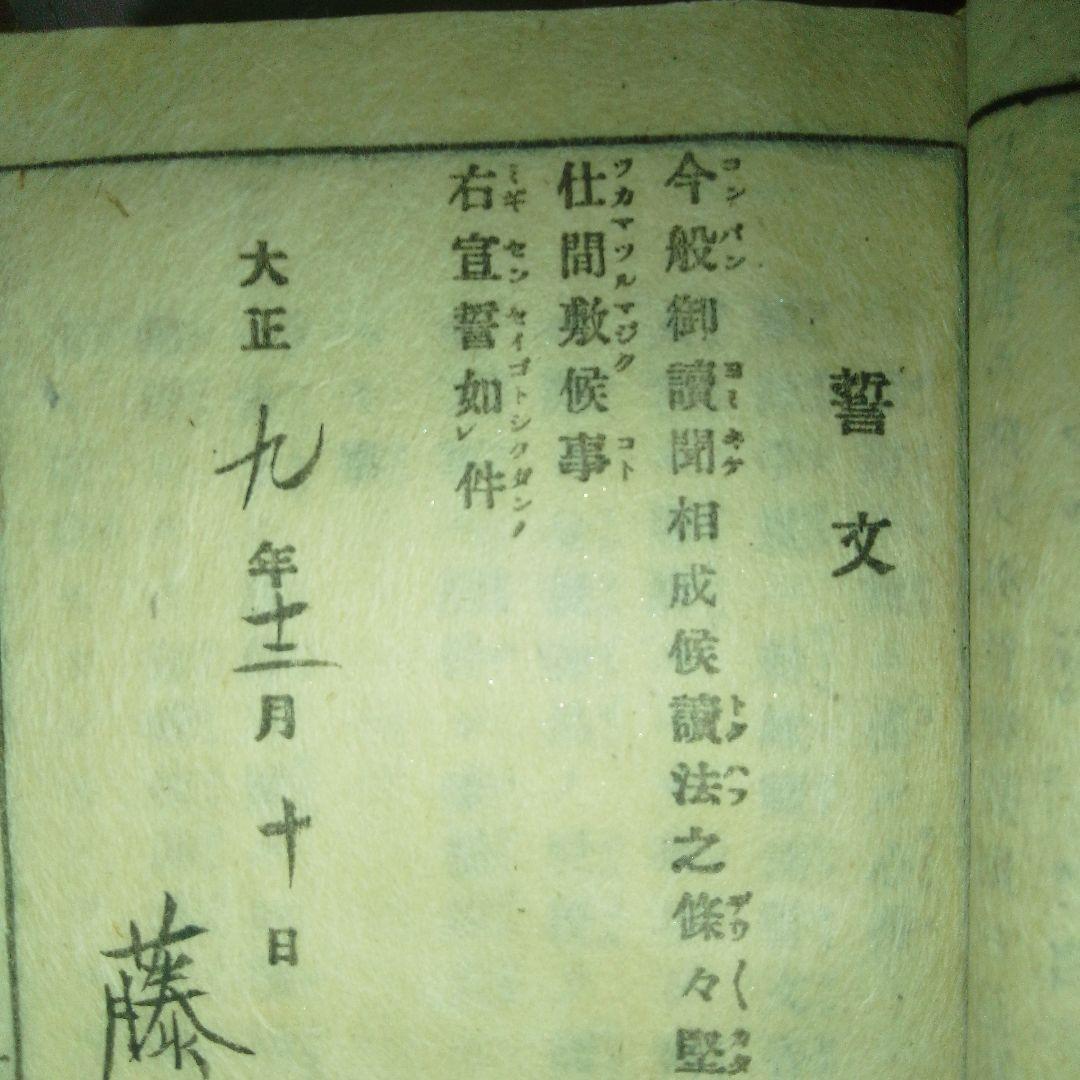 誓文
今般御讀聞相成候讀法之條々堅
仕間敷候事
右宣誓如レ件
大正九年十二月十日
藤